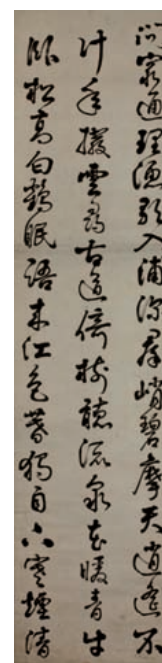 問窮通理漁歌入浦深群峭碧摩天逍遙不
計年撥雲尋古道倚樹聽流泉花暖青牛
臥松高白鶴眠語來江色暮獨自下寒煙清